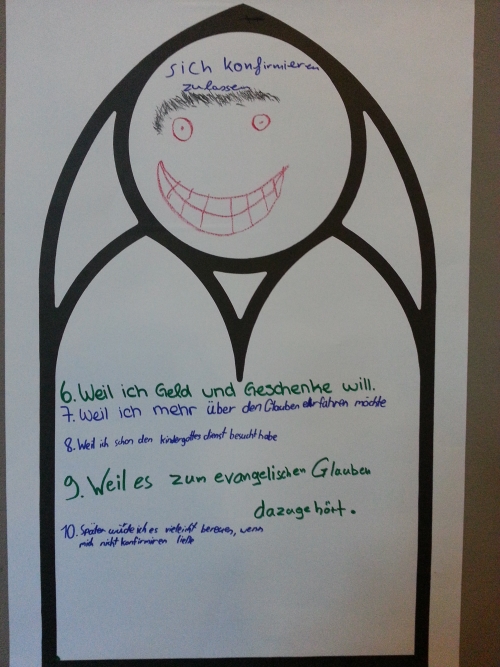 sich konfirmieren
zulassen
6. Weil ich Geld und Geschenke will.
7. Weil ich mehr über den Glauben erfahren möchte
8. Weil ich schon den kindergottesdienst besucht habe
9. Weil es zum evangelischen Glauben
dazugehört.
10. Später würde ich es vieleicht bereuen, wenn
mich nicht konfirmieren ließe